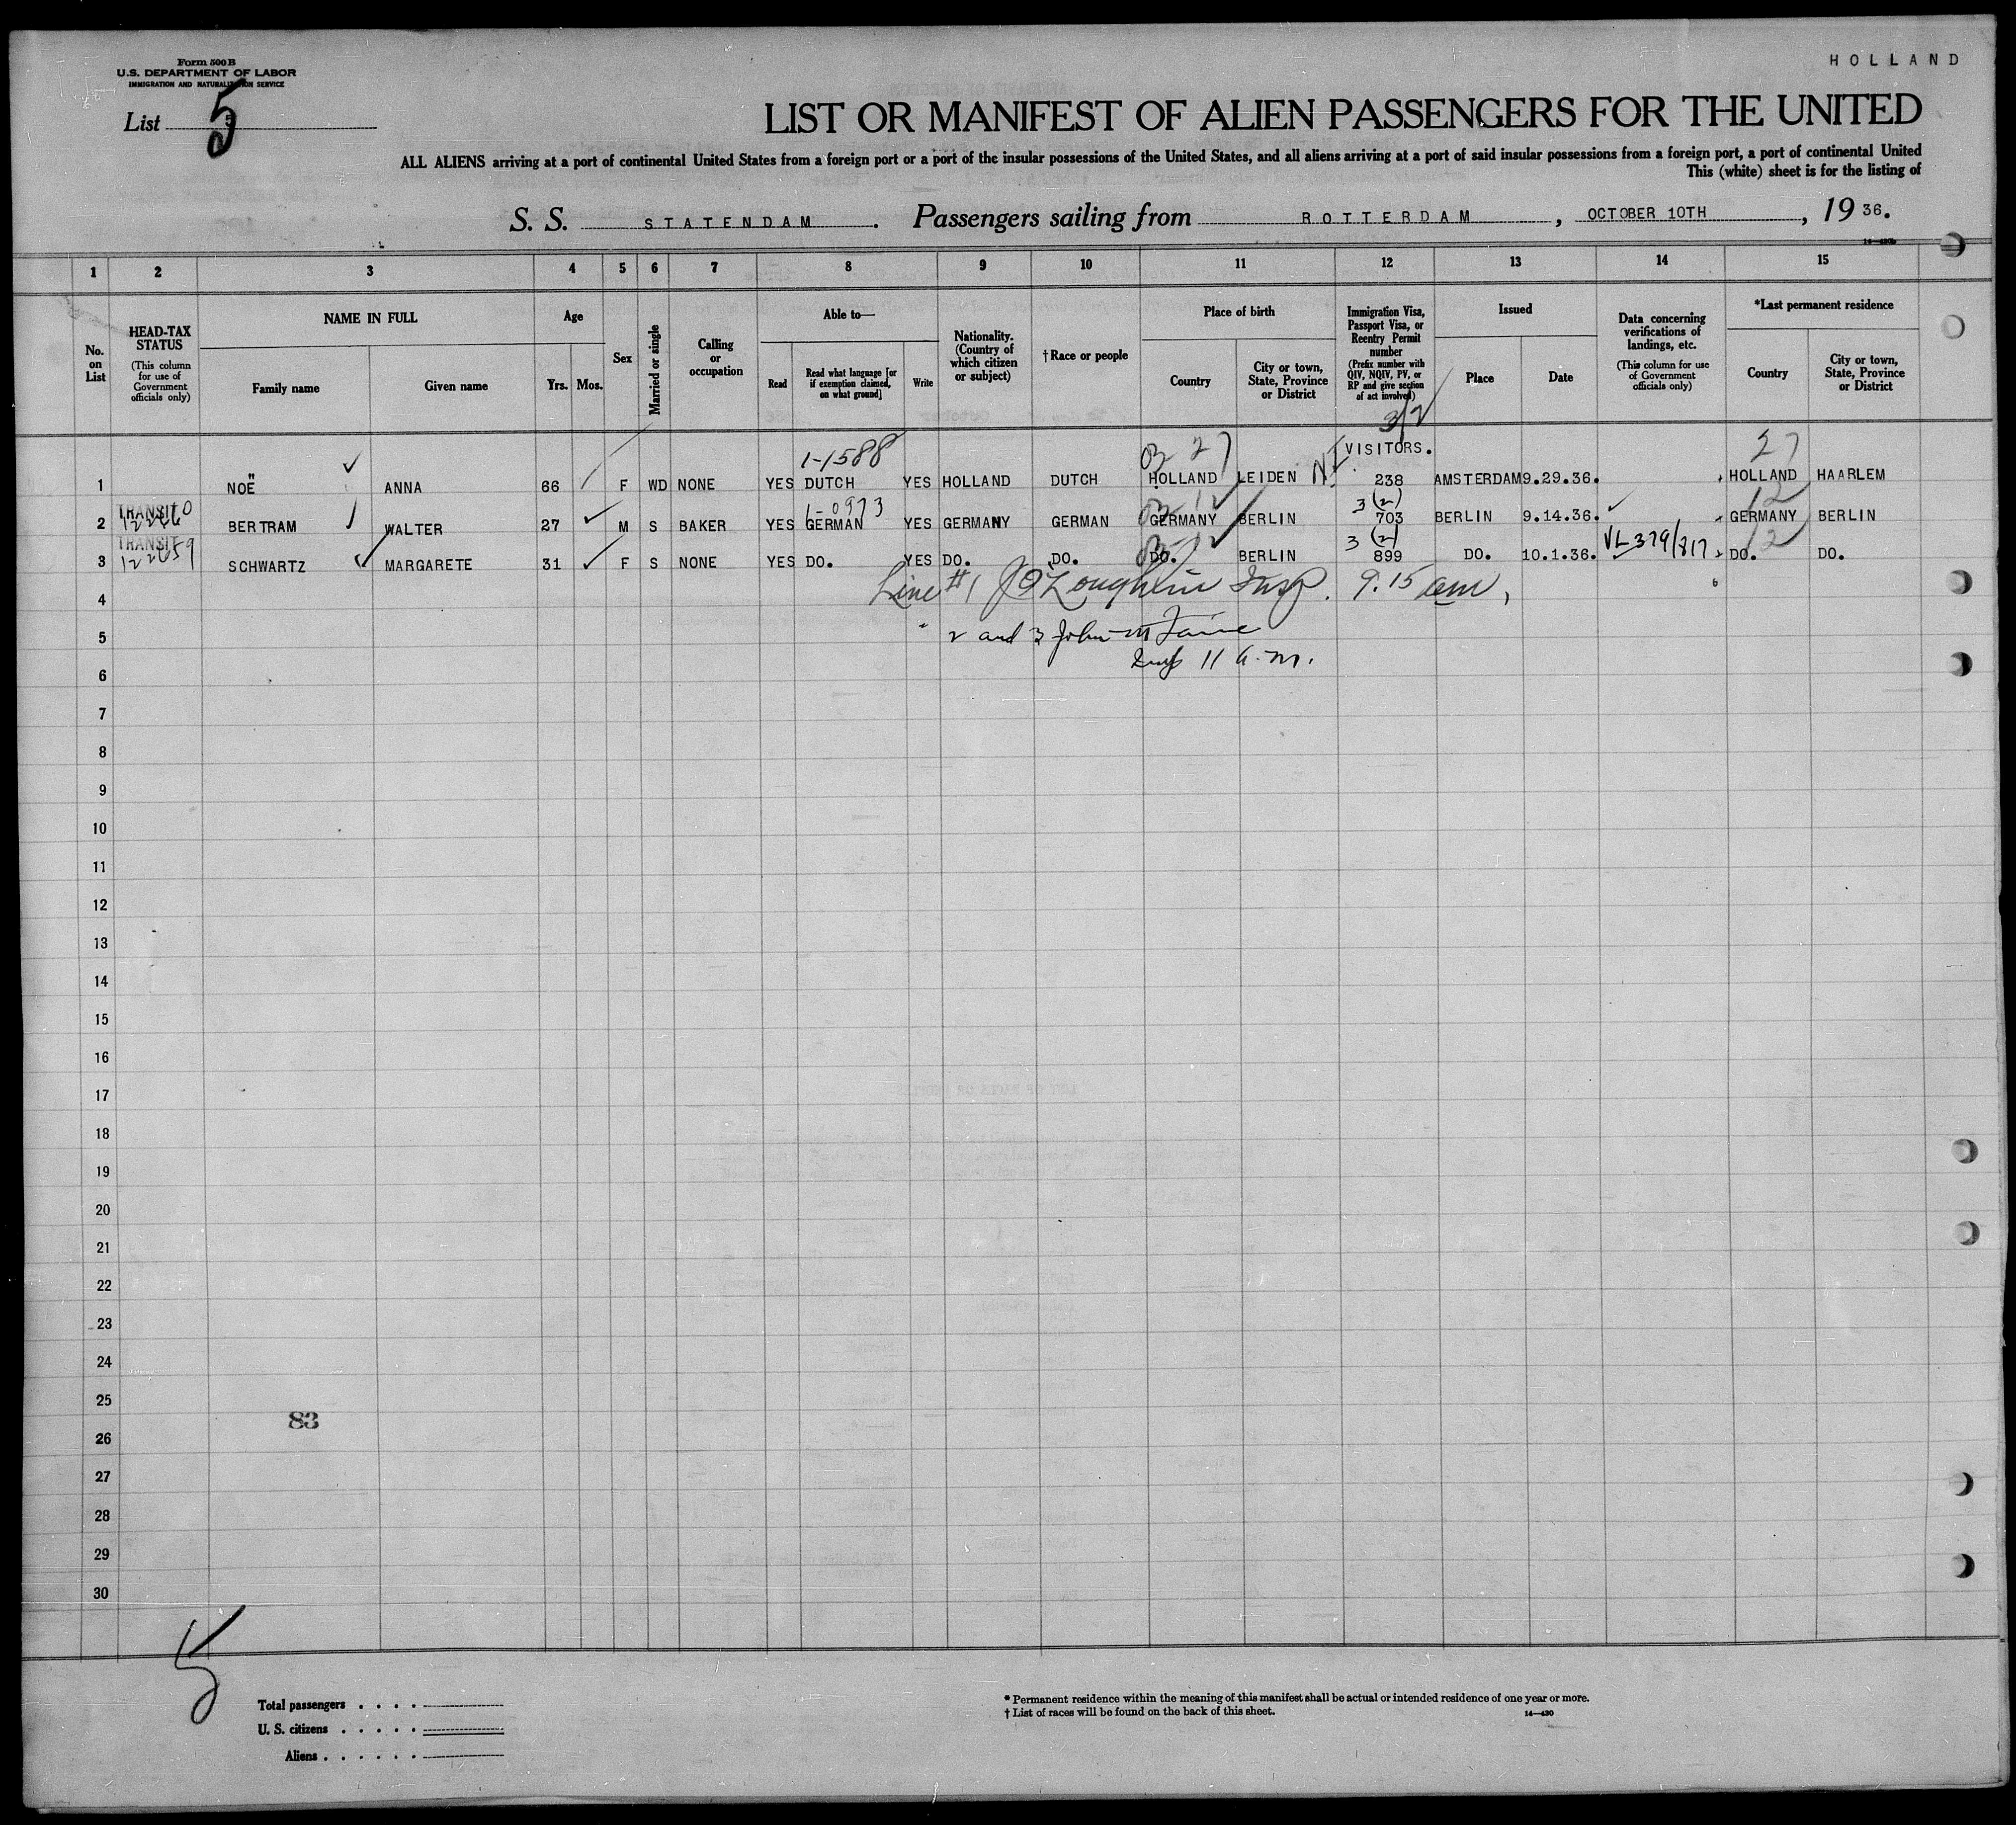 HOLLAND
Form 500 B
U.S. DEPARTMENT OF LABOR
IMMIGRATION AND NATURALIZATION SERVICE
List 5
LIST OR MANIFEST OF ALIEN PASSENGERS FOR THE UNITED
ALL ALIENS arriving at a port of continental United States from a foreign port or a port of the insular possessions of the United States, and all aliens arriving at a port of said insular possessions from a foreign port, a port of continental United
This (white) sheet is for the listing of
S. S. STATENDAM. Passengers sailing from ROTTERDAM, OCTOBER 10TH, 19 36.
14—430b
1 2 3 4 5 6 7 8 9 10 11 12 13 14 15
No. on List
HEAD-TAX STATUS
(This column for use of Government officials only)
NAME IN FULL
Family name
Given name
Age
Yrs. Mos.
Sex
Married or single
Calling or occupation
Able to—
Read
Read what language [or if exemption claimed, on what ground]
Write
Nationality. (Country of which citizen or subject)
†Race or people
Place of birth
Country
City or town, State, Province or District
Immigration Visa, Passport Visa, or Reentry Permit number
(Prefix number with QIV, NQIV, PV, or RP and give section of act involved)
Issued
Place
Date
Data concerning verifications of landings, etc.
(This column for use of Government officials only)
*Last permanent residence
Country
City or town, State, Province or District
3/2
1-1588 27 VISITORS. 27
1 NOË ANNA 66 F WD NONE YES DUTCH YES HOLLAND DUTCH HOLLAND LEIDEN 238 AMSTERDAM 9.29.36. HOLLAND HAARLEM
TRANSIT 1-0973 12 3(2) 12
2 BERTRAM WALTER 27 M S BAKER YES GERMAN YES GERMANY GERMAN GERMANY BERLIN 703 BERLIN 9.14.36. GERMANY BERLIN
TRANSIT 12 3(2) VL379/817 12
3 122659 SCHWARTZ MARGARETE 31 F S NONE YES DO. YES DO. DO. DO. BERLIN 899 DO. 10.1.36. DO. DO.
4 Line #1 J O'Loughlin Insp. 9.15 am,
5 " 2 and 3 John M
6 Insp 11 A.M.
7
8
9
10
11
12
13
14
15
16
17
18
19
20
21
22
23
24
25
83
26
27
28
29
30
5
Total passengers
U. S. citizens
Aliens
* Permanent residence within the meaning of this manifest shall be actual or intended residence of one year or more.
† List of races will be found on the back of this sheet.
14—430